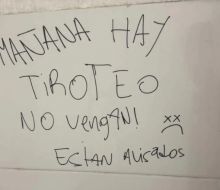 MAÑANA HAY
TiROTEO
NO VengAN!
ESTAN AVisados